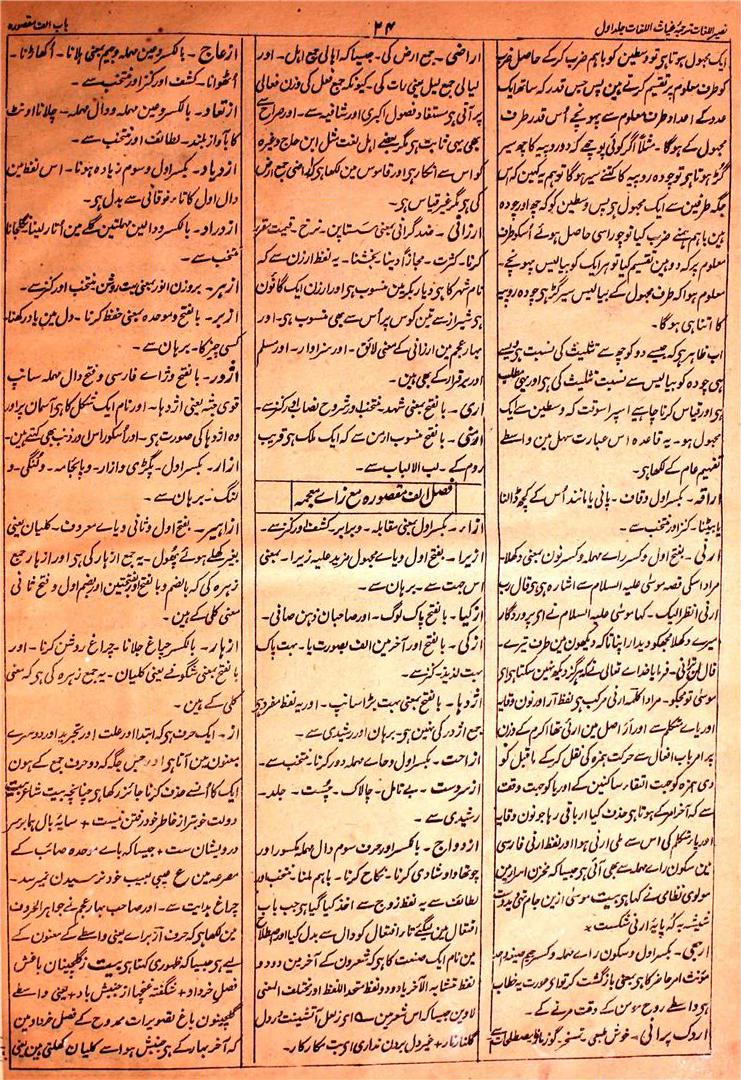 باب الف مقصورہ
۲۴
نصیر اللغات ترجمۂ غیاث اللغات جلد اول
ایک مجہول ہوتا ہی تو وسطین کو باہم ضرب کرکے حاصل ضرب
کو طرف معلوم پر تقسیم کرتے ہین پس جس قدر کہ ساتھ ایک
عدد کے اعداد طرف معلوم سے پہونچے اُس قدر طرف
مجہول کے ہوگا۔ مثلاً اگر کوئی پوچھے کہ دو روپیہ کا چھ سیر
گڑ ہوتا ہی تو چودہ روپیہ کا کتنے سیر ہوگا تو ہم یہ کہین کہ اس
جگہ طرفین سے ایک مجہول ہی پس وسطین کو کہ چھ اور چودہ
ہین باہم ہمنے ضرب کیا تو چوراسی حاصل ہوئے اُسکو طرف
معلوم پر کہ دو ہین تقسیم کیا تو ہر ایک کو بیالیس پہونچے۔
معلوم ہوا کہ طرف مجہول کے بیالیس سیر گڑ ہی چودہ روپیہ
کا اتنا ہی ہوگا۔
اب ظاہر ہی کہ جیسے دو کو چھ سے تثلیث کی نسبت ہی ویسے
ہی چودہ کو بیالیس سے نسبت تثلیث کی ہی اور یہی مطلب
ہی اور قیاس کرنا چاہیے اسپر اسوقت کہ وسطین سے ایک
مجہول ہو۔ یہ قاعدہ اس عبارت سہل مین واسطے
تفہیم عام کے لکھا ہی۔
اراقہ۔ بکسر اول وقاف۔ پانی یا مانند اُس کے کچھ ڈالنا
یا بہانا۔ کنز اور منتخب سے۔
ارنی۔ بفتح اول وکسر راے مہملہ وکسر نون بمعنی دکھلا۔
مراد اسکی قصہ موسیٰ علیہ السلام سے اشارہ ہی قال رب
ارنی انظر الیک۔ کہا موسیٰ علیہ السلام نے ای پروردگار
میرے دکھلا مجھکو دیدار اپنا تاکہ دیکھون مین طرف تیرے۔
قال لن ترانی۔ فرمایا خداے تعالیٰ نے کہ ہرگز دیکھ نہین سکتا ہی ای
موسیٰ تو مجھکو۔ مراد اکلمہ ارنی مرکب ہی لفظ اَر اور نون وقایہ
اور یاے متکلم سے اور اَر اصل مین ارئی تھا اکرم کے وزن
پر امر باب افعال سے حرکت ہمزہ کی نقل کرکے ماقبل کو
دی ہمزہ کو بجہت التقاء ساکنین کے اور یا کو بجہت وقف
سے کہ آخر امر کے ہوتا ہی حذف کیا ار باقی رہا جو نون وقایہ
اور یاے متکلم کی اس سے ملی ارنی ہوا اور لفظ ارنی فارسی
مین سکون راے مہملہ سے بھی آئی ہی جیسا کہ مخزن اسرار مین
مولوی نظامی نے کہا ہی بیت موسیٰ ازین جام تہی دید دست
شیشہ بکہ پایۂ ارنی شکست ٭
ارجعی۔ بکسر اول وسکون راے مہملہ وکسر جیم صیغہ
مؤنث امر حاضر کا ہی بمعنی بازگشت کر تو ای عورت یہ خطاب
ہی واسطے روح مومن کے وقت مرنے کے۔
اروک پرانی۔ خوش طبعی۔ تمسخر۔
اراضی۔ جمع ارض کی۔ جیسا کہ اہالی جمع اہل۔ اور
لیالی جمع لیل بمعنی رات کی۔ کیونکہ جمع فعل کی وزن فعالی
پر آتی ہی مستفاد فصول اکبری اور شافیہ سے۔ اور صراح سے
بھی یہی ثابت ہی مگر بعضے اہل لغت مثل ابن حاج وغیرہ
کو اس سے انکار ہی اور قاموس مین لکھا ہی کہ اراضی جمع ارض
کی ہی مگر غیر قیاس ہی۔
ارزانی۔ ضد گرانی بمعنی سستاپن۔ نرخ۔ قیمت مقرر
کرنا۔ کثرت۔ مجازاً دینا بخشنا۔ یہ لفظ ارزن سے کہ
نام شہر کا ہی دیار بکر مین منسوب ہی اور ارزن ایک گانون
ہی شیراز سے تین کوس پر اُس سے بھی منسوب ہی۔ اور
بہار عجم مین ارزانی کے معنی لائق۔ اور سزاوار۔ اور مسلم
اور برقرار کے بھی ہین۔
اری۔ بالفتح بمعنی شہد۔ منتخب اور شروح نصاب اور کنز سے۔
ارمنی۔ بالفتح منسوب ارمن سے کہ ایک ملک ہی قریب
روم کے۔ لب الالباب سے۔
فصل الف مقصورہ مع زاے معجمہ
ازا۔ بکسر اول بمعنی مقابلہ۔ وبرابر۔ کشف اور کنز سے۔
ازیرا۔ بفتح اول ویاے مجہول مزید علیہ زیرا۔ بمعنی
اس جہت سے۔ برہان سے۔
ازکیا۔ بالفتح پاک لوگ۔ اور صاحبان ذہن صافی۔
ازکی۔ بالفتح اور آخر مین الف بصورت یا۔ بہت پاک
بہت لذیذ۔ کنز سے۔
اژدہا۔ بالفتح بمعنی بہت بڑا سانپ۔ اور یہ لفظ مفرد ہی
جمع اژدر کی نہین ہی۔ برہان اور رشیدی سے۔
ازاحت۔ بکسر اول وحاے مہملہ دور کرنا۔ منتخب سے۔
ازمردست۔ بے تامل۔ چالاک۔ چُست۔ جلد۔
رشیدی سے۔
ازدواج۔ بالکسر اور حرف سوم دال مہملہ مکسور اور
چوتھا واو شادی کرنا۔ نکاح کرنا۔ باہم ملنا۔ منتخب اور
لطائف سے یہ لفظ زوج سے اخذ کیا گیا ہی جب باب
افتعال مین لیگئے تاے افتعال کو دال سے بدل کیا اور اصطلاح
مین نام ایک صنعت کا ہی کہ شعرون کے آخر مین دو دو
لفظ متشابہ الآخر یا دو دو لفظ متحد اللفظ اور مختلف المعنی
لاوین جیسا کہ اس شعر مین ؎ ای زلعل آتشینت در دل
گلنار نار ٭ غیر دل بردن نداری ای بت مکار کار۔
ازعاج۔ بالکسر وعین مہملہ وجیم بمعنی ہلانا۔ اُکھاڑنا۔
اُٹھوانا۔ کشف اور کنز اور منتخب سے۔
ازتعاد۔ بالکسر وعین مہملہ ودال مہملہ۔ چلانا اونٹ
کا آواز بلند۔ لطائف اور منتخب سے۔
ازدیاد۔ بکسر اول وسوم زیادہ ہونا۔ اس لفظ مین
دال اول کا تاے فوقانی سے بدل ہی۔
ازدراد۔ بالکسر ودالین مہملتین گلے مین اُتار لینا نگلجانا
منتخب سے۔
ازہر۔ بروزن انور بمعنی بہت روشن۔ منتخب اور کنز سے۔
ازبر۔ بالفتح وموحدہ بمعنی حفظ کرنا۔ دل مین یاد رکھنا
کسی چیز کا۔ برہان سے۔
اژدر۔ بالفتح وزاے فارسی وفتح دال مہملہ سانپ
قوی جثہ یعنی اژدہا۔ اور نام ایک شکل کا ہی آسمان پر اور
وہ اژدہا کی صورت ہی۔ اور اسکو راس اور ذنب بھی کہتے ہین۔
ازار۔ بکسر اول۔ پگڑی وازار۔ وپائجامہ۔ ولُنگی۔ و
لنگ۔ برہان سے۔
ازاہیر۔ بفتح اول وثانی ویاے معروف۔ کلیان یعنی
بغیر کھلے ہوئے پھول۔ یہ جمع ازہار کی ہی اور ازہار جمع
زہرہ کی کہ بالضم وبالفتح اور بفتحتین اور بضم اول وفتح ثانی
معنی کلی کے ہین۔
ازہار۔ بالکسر چراغ جلانا۔ چراغ روشن کرنا۔ اور
بالفتح بمعنی شگوفے یعنی کلیان۔ یہ جمع زہرہ کی ہی کہ معنی
کلی کے ہین۔
از۔ ایک حرف ہی کہ ابتدا اور علت اور تجرید اور دوسرے
معنون مین آتا ہی اور جس جگہ کہ دو حرف جمع کے ہون
ایک کا اُنسے حذف کرنا جائز رکھا ہی چنانچہ بیت شاعر بیت
دولت خوبتر از خاطر خود رفتن نیست ٭ سایۂ بال ہما بر سر
درویشان ست ٭ جیسا کہ باے موحدہ صائب کے
مصرعہ مین ع عیبی بعیب خود نرسیدن نمیرسد۔
چراغ ہدایت سے۔ اور صاحب بہار عجم نے جواہر الحروف
مین لکھا ہی کہ حرف از براے یعنی واسطے کے معنون کے
لیے ہی جیسا کہ ظہوری کہتا ہی بیت زگلچینان باغش
فصل خرداد ٭ شگفتہ غنچہا از جنبش باد ٭ یعنی واسطے
گلچینون باغ تصویرات ممدوح کے فصل خرداد مین
کہ آخر بہار کے ہی جنبش ہوا سے کلیان کھلتی ہین یعنی